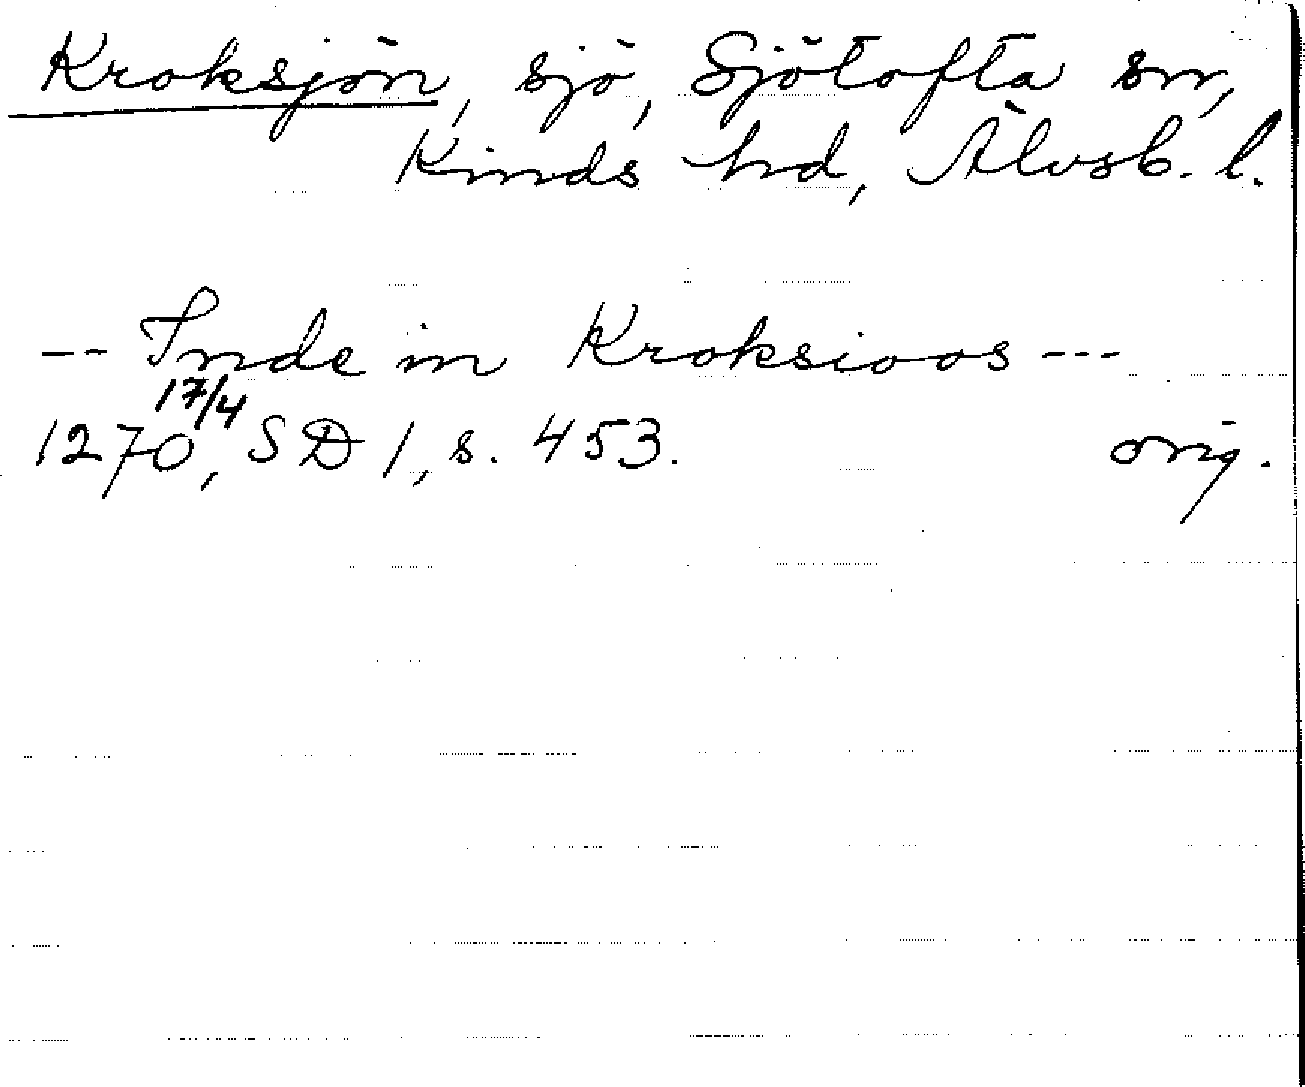 Kroksjön, sjö, Sjötofta sn,
Kinds hd, Älvsb. l.
-- Inde in Kroksioos ---
17/4
1270, SD 1, s. 453. orig.